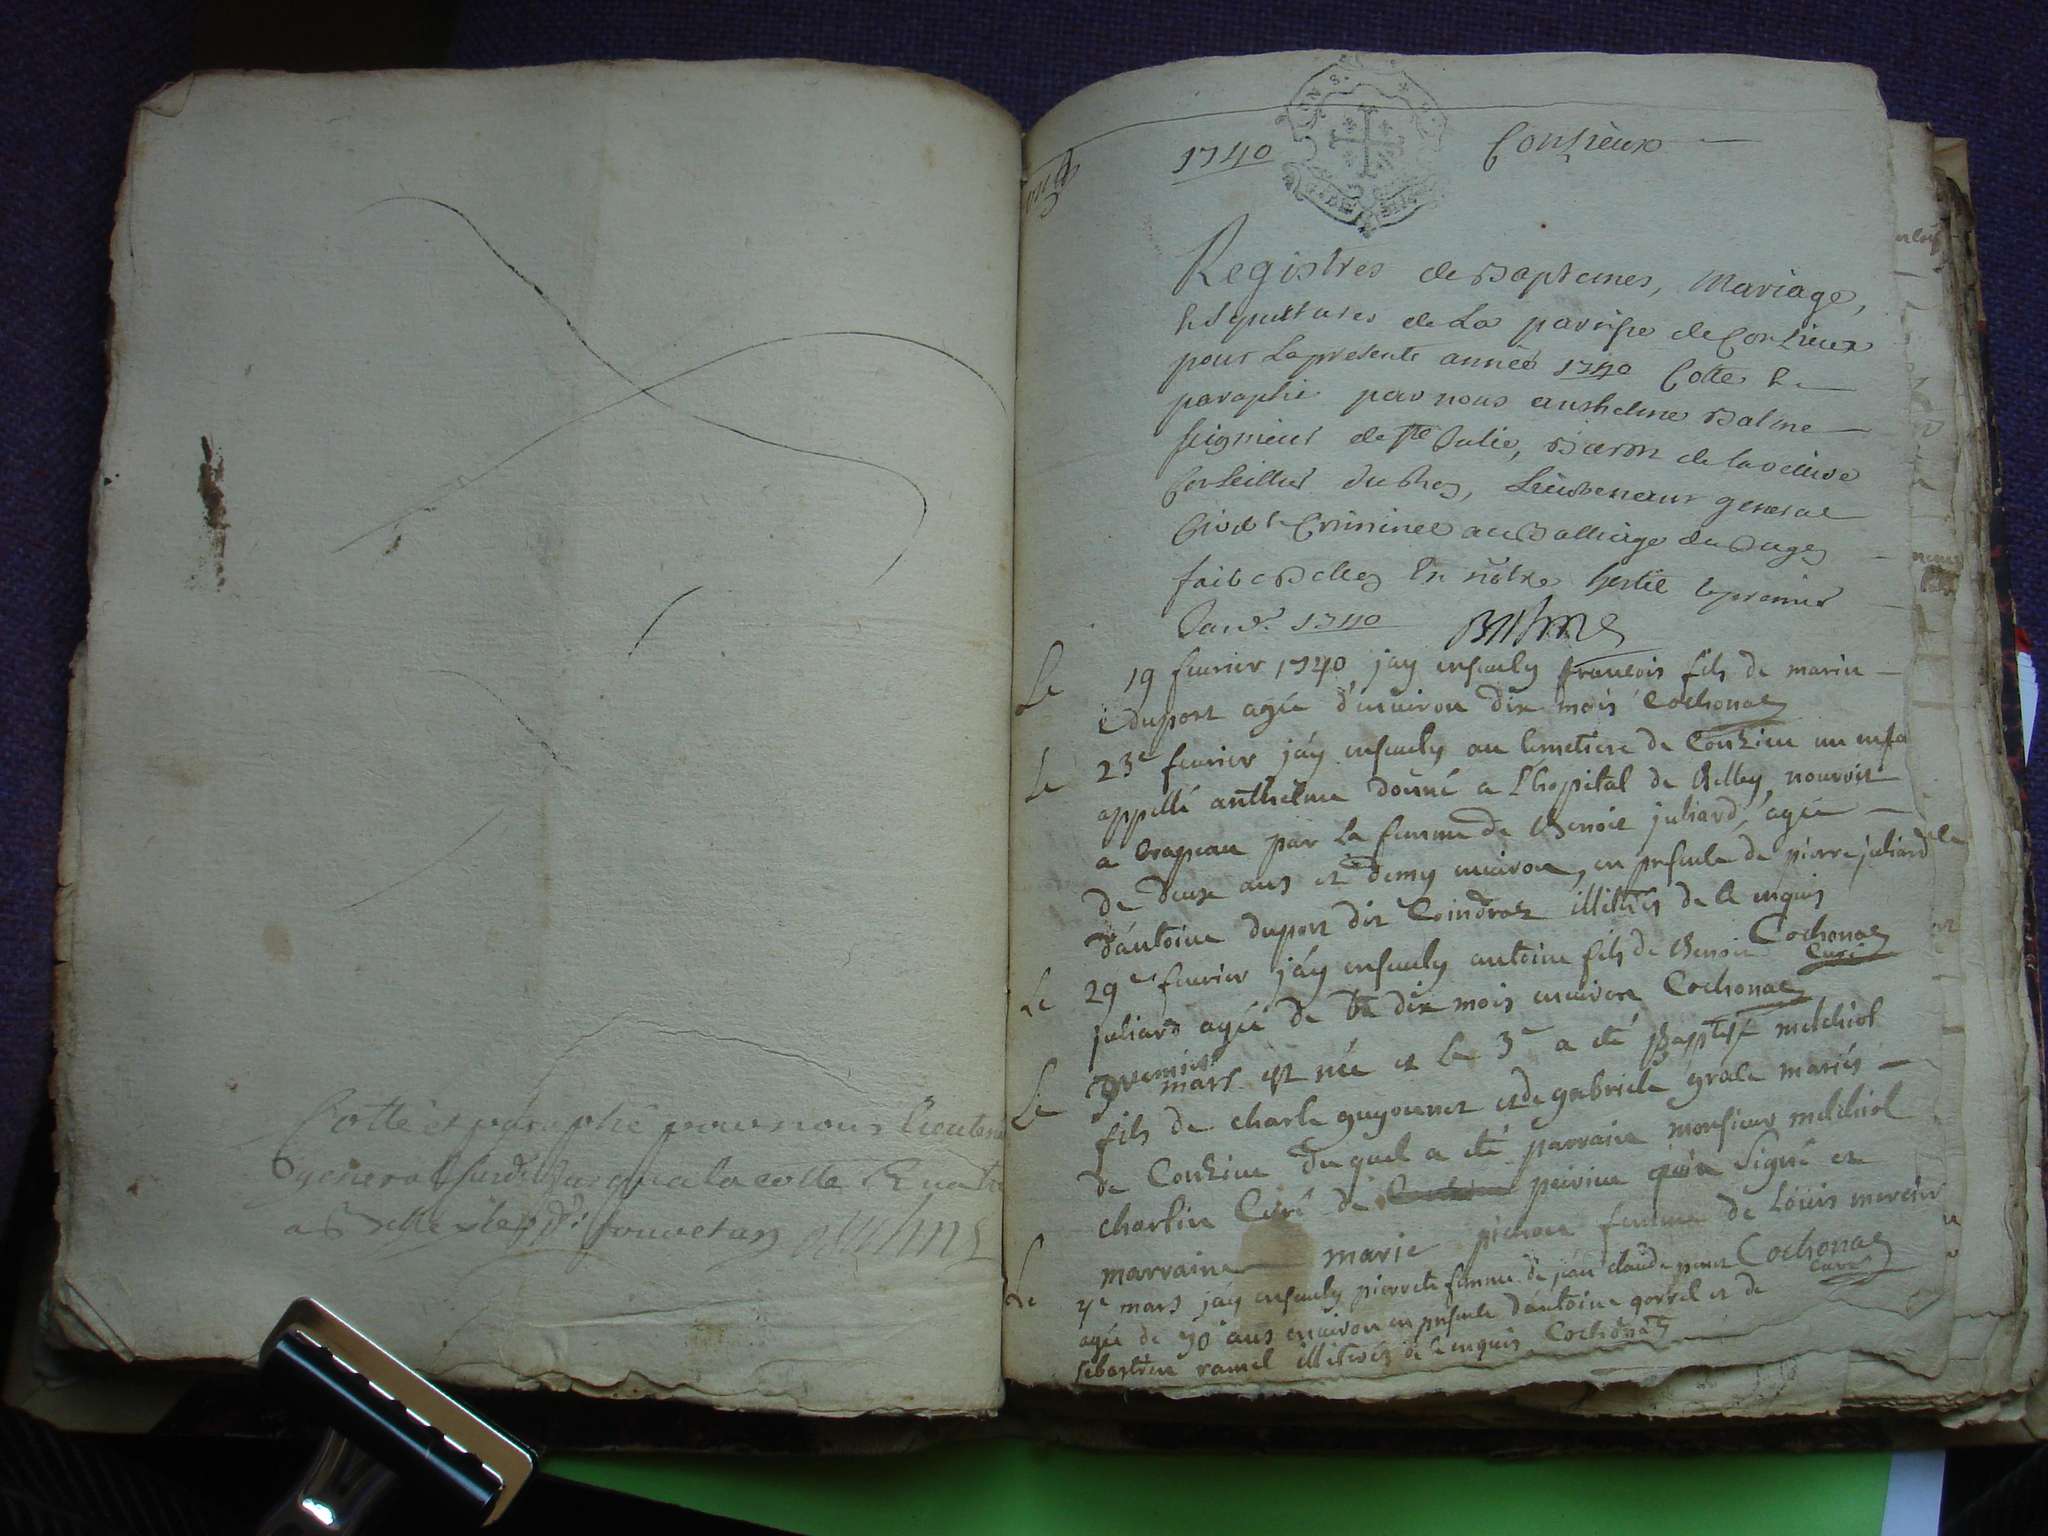 Cotté et paraphé par nous Lieutena
general susd. jusqu'a la cotte
a Belley led. jour et an Balme
1740
Conzieux
Registres de Baptemes, Mariage,
& Sepultures de La paroisse de Conzieux
pour La presente année 1740 Cotte &
paraphé par nous anthelme Balme
seigneur de Ste Julie, Baron de
Conseiller du Roy, Lieutenant general
Civil & Criminel au Balliage du Bugey
fait a Belley En nôtre hostel le premier
Janv.r 1740 Balme
Le 19 fevrier 1740 jay ensevely francois fils de marin
duport agée d'environ dix mois Cochonat
Le 23e fevrier jáy ensevely au Cemetiere de Conzieu un enfa
appellé anthelme donné a l'hopital de Belley, nourrit
a Crapeau par la femme de Benoit juliard, agée
de deux ans et demy environ, en presence de pierre juliard
d'antoine duport dit Coindroz illiterés de ce enquis
Cochonat
Curé
Le 29e fevrier jáy ensevely antoine fils de Benoit
juliard agée de dix mois environ Cochonat
Le premier mars est née et le 3e a été Baptisé melchiol
fils de charle guyonnet et de gabriele grale mariés
de Conzieu duquel a été parrain monsieur melchiol
charlin Curé de peirieu qui a signé et
marraine marie pichon femme de Louis mercier
Cochonat
curé
Le 7e mars jáy ensevely pierrete femme de jean claude
agée de 70 ans environ en presence d'antoine gorrel et de
sebastien ramel illiterés de ce enquis Cochonat